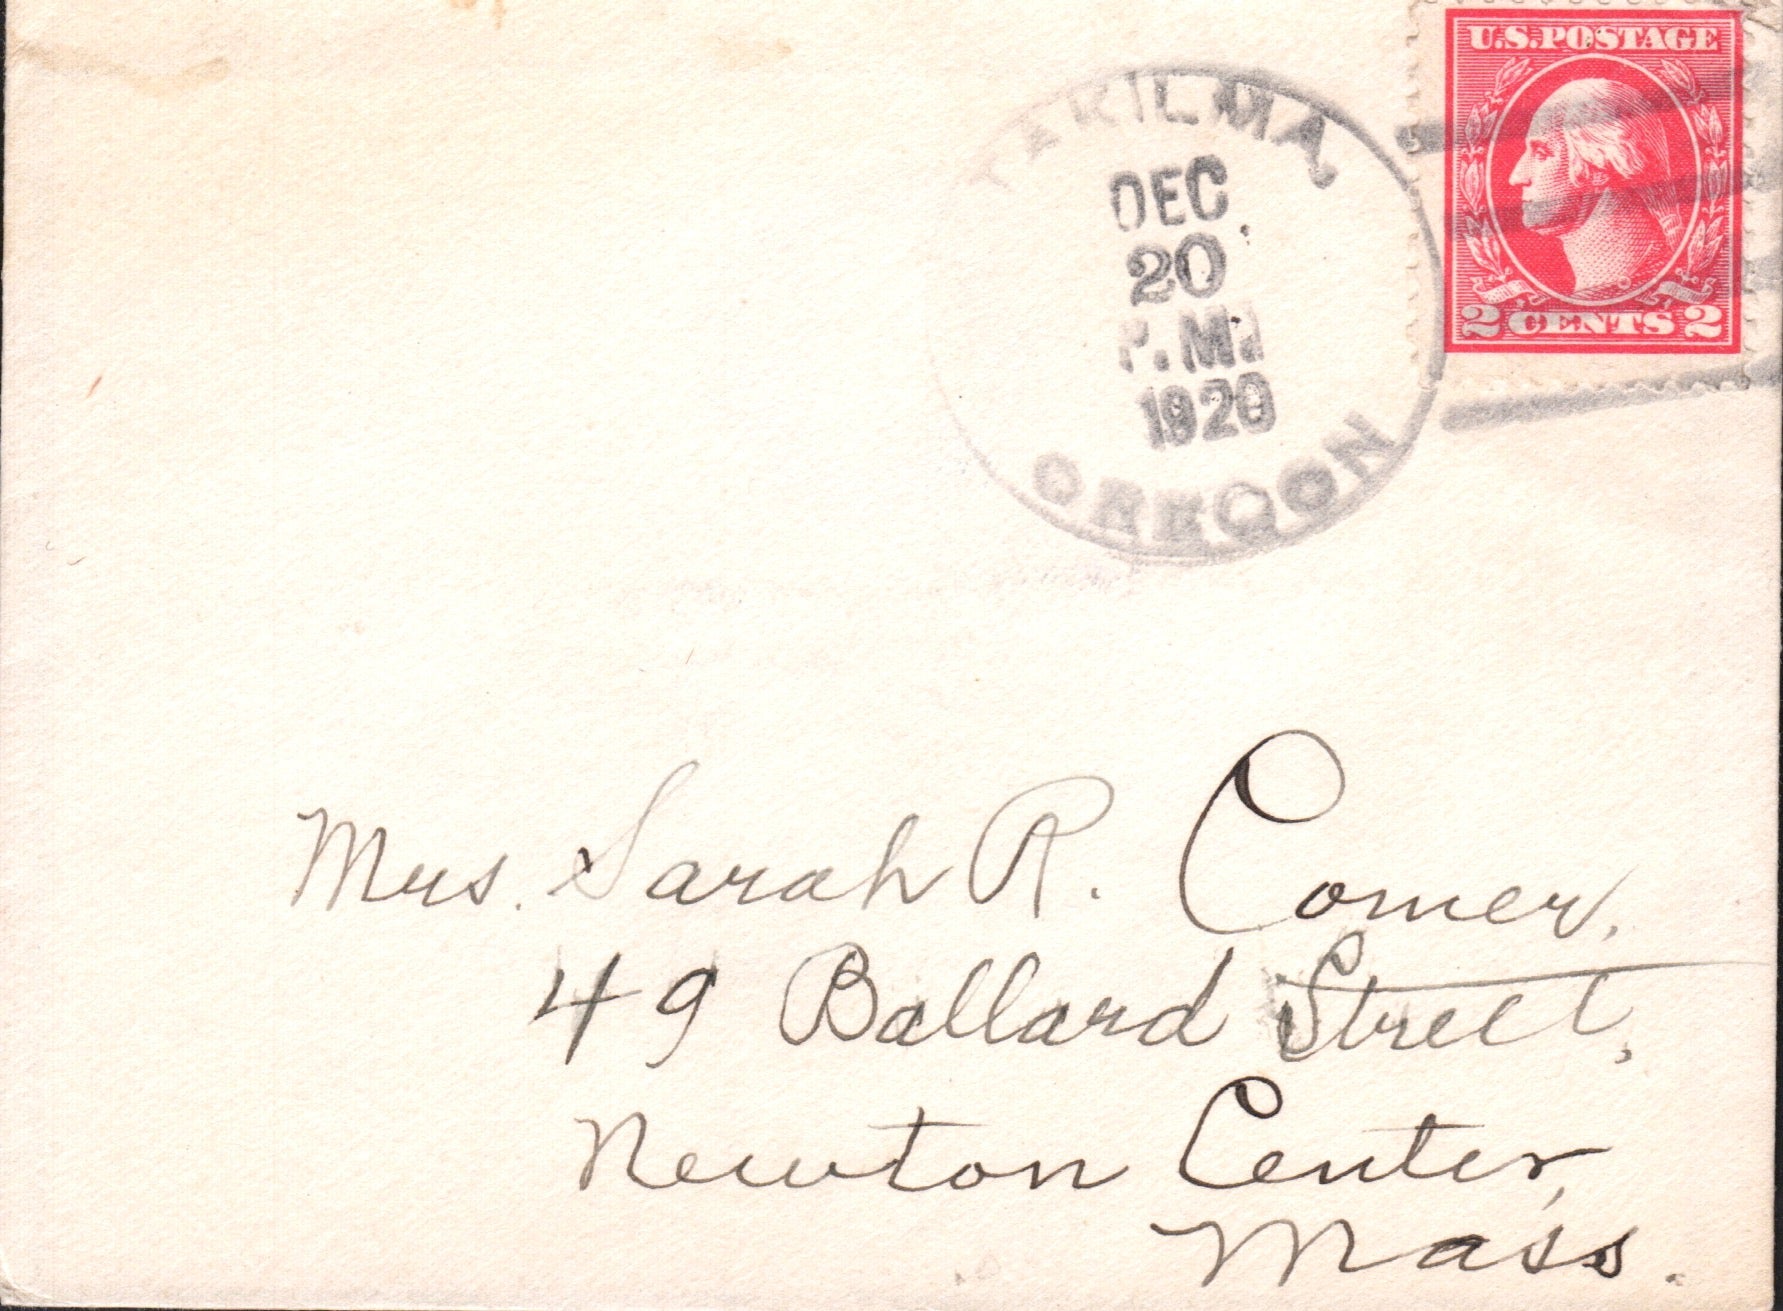 U.S.POSTAGE
2 CENTS 2
TAKILMA
DEC
20
P.M.
1920
OREGON
Mrs. Sarah R. Comer,
49 Ballard Street,
Newton Center,
Mass.